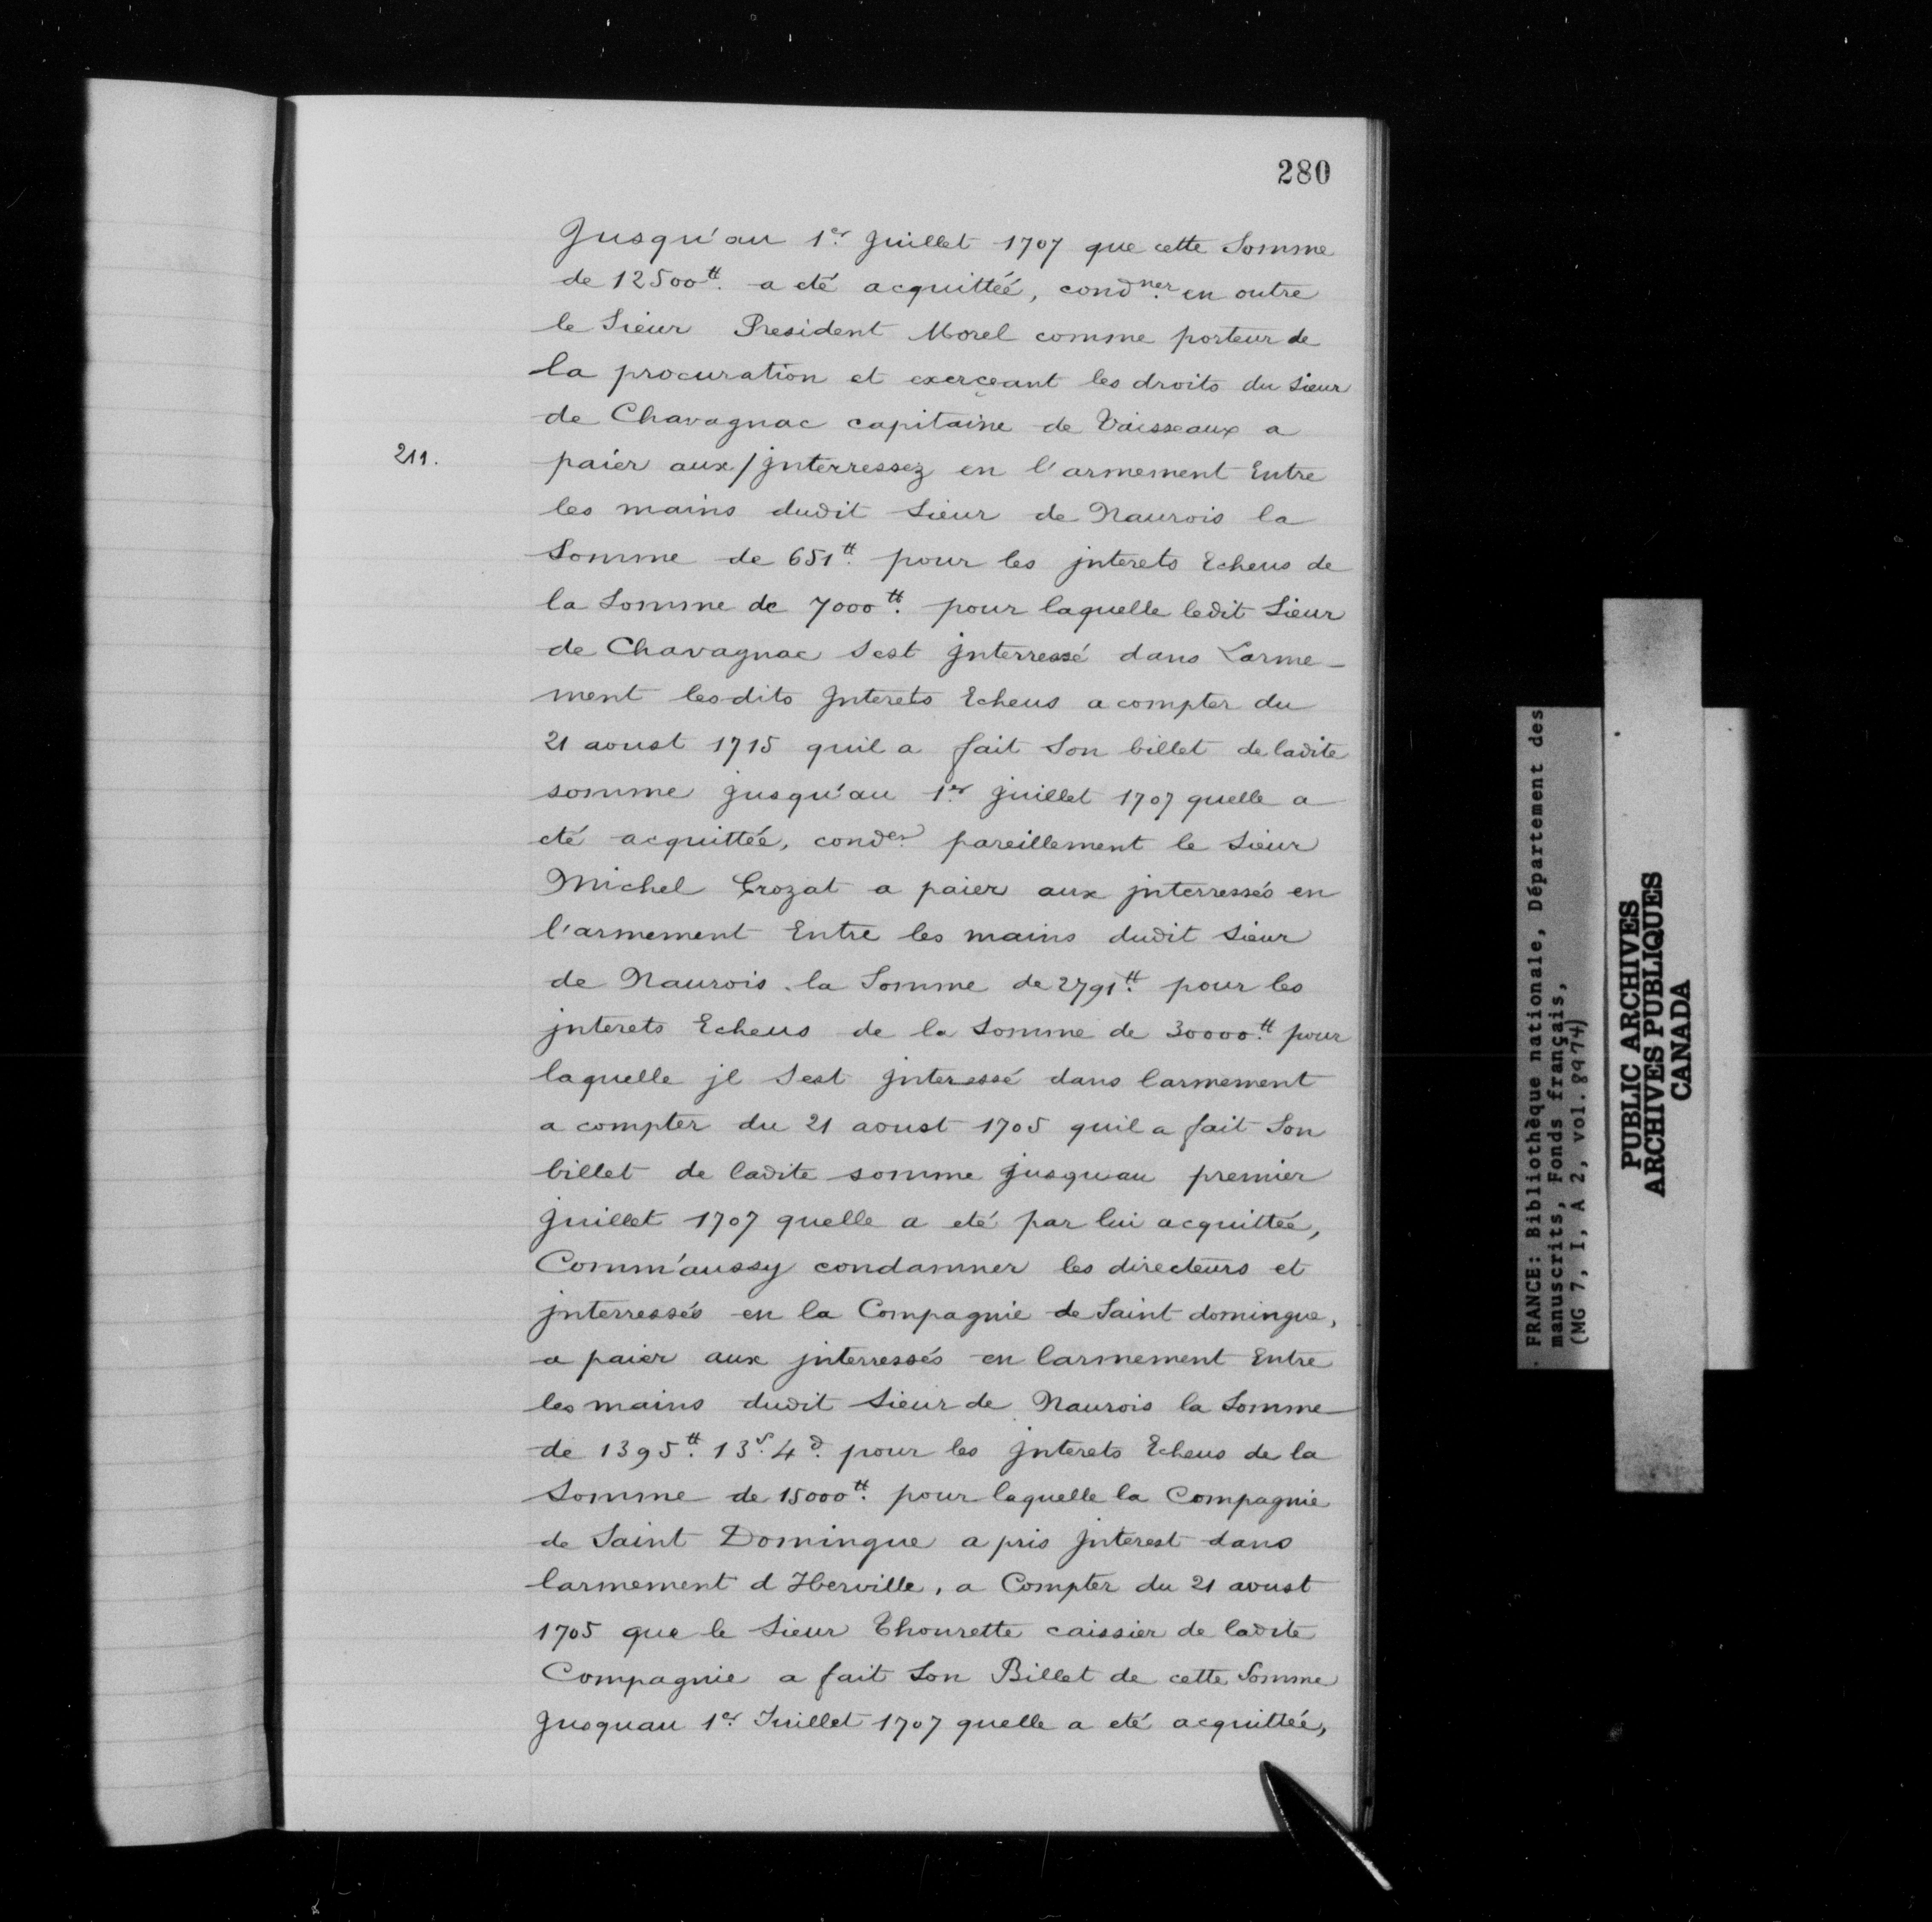 280
Jusqu'au 1er Juillet 1707 que cette Somme
de 12500tt. a eté acquittéé, condner en outre
le Sieur President Morel comme porteur de
la procuration et exerçeant les droits du Sieur
de Chavagnac capitaine de Vaisseaux a
211.
paier aux / Jnterressez en l'armement Entre
les mains dudit Sieur de Naurois la
Somme de 651tt. pour les jnterets Echeus de
la Somme de 7000tt. pour laquelle ledit Sieur
de Chavagnac Sest Jnterressé dans Larme-
ment lesdits Jnterets Echeus a compter du
21 aoust 1715 quil a fait Son billet de ladite
somme jusqu'au 1er juillet 1707 quelle a
eté acquittée, conder pareillement le Sieur
Michel Crozat a paier aux jnterressés en
l'armement Entre les mains dudit Sieur
de Naurois la Somme de 2791tt. pour les
jnterets Echeus de la Somme de 30000tt. pour
laquelle jl Sest jnteressé dans larmement
a compter du 21 aoust 1705 quil a fait Son
billet de ladite somme jusquau premier
Juillet 1707 quelle a eté par lui acquittée,
Comm'aussy condamner les directeurs et
jnterressés en la Compagnie de Saint domingue,
a paier aux jnterressés en larmement Entre
les mains dudit Sieur de Naurois la Somme
de 1395tt. 13s. 4d. pour les Jnterets Echeus de la
Somme de 15000tt. pour laquelle la Compagnie
de Saint Domingue a pris Jnterest dans
larmement d Iberville, a Compter du 21 aoust
1705 que le Sieur Thourette caissier de ladite
Compagnie a fait Son Billet de cette Somme
Jusquau 1er Juillet 1707 quelle a eté acquittée,
FRANCE: Bibliothèque nationale, Département des
manuscrits, Fonds français,
(MG 7, I, A 2, vol. 8974)
PUBLIC ARCHIVES
ARCHIVES PUBLIQUES
CANADA